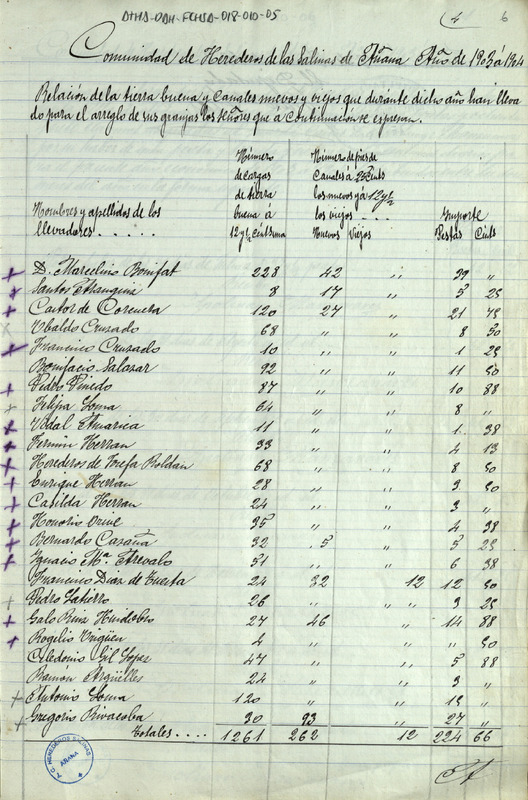 ATHA-DAH-FCHSA-018-010-05
4 6
Comunidad de Herederos de las Salinas de Añana Año de 1903 á 1904
Relación de la tierra buena y canales nuevos y viejos que durante dicho año han lleva
do para el arreglo de sus granjas los señores que á continuación se espresan.
Nombres y apellidos de los llevadores . . . . . Número de cargas de tierra buena á 12 y ½ cents una Número de pies de Canales á 25 cents los nuevos y á 12 y ½ los viejos Nuevos Viejos Importe Pestas Cints
D. Marcelino Bonifat 228 42 " 39 "
Santos 8 17 " 5 25
Castor de Corcuera 120 27 " 21 75
Ubaldo Cruzado 68 " " 8 50
Francisco Cruzado 10 " " 1 25
Bonifacio Salazar 92 " " 11 50
Pedro Pinedo 87 " " 10 88
Felipa Loma 64 " " 8 "
Vidal 11 " " 1 38
Fermin Herran 33 " " 4 13
Herederos de Josefa Roldán 68 " " 8 50
Enrique Herran 28 " " 3 50
Casilda Herran 24 " " 3 "
Honorio Orive 35 " " 4 38
Bernardo 32 5 " 5 25
Ignacio Mª Arevalo 51 " " 6 38
Francisco Diaz de Tuesta 24 32 12 12 50
Pedro 26 " " 3 25
Galo Ruiz 27 46 " 14 88
Rogelio Ungüen 4 " " " 50
Celedonio Gil Lopez 47 " " 5 88
Ramon Argüelles 24 " " 3 "
Antonio Loma 120 " " 15 "
Gregorio Rivacoba 30 93 " 27 "
Totales . . . . 1261 262 12 224 66
T. C. HEREDEROS SALINAS
AÑANA